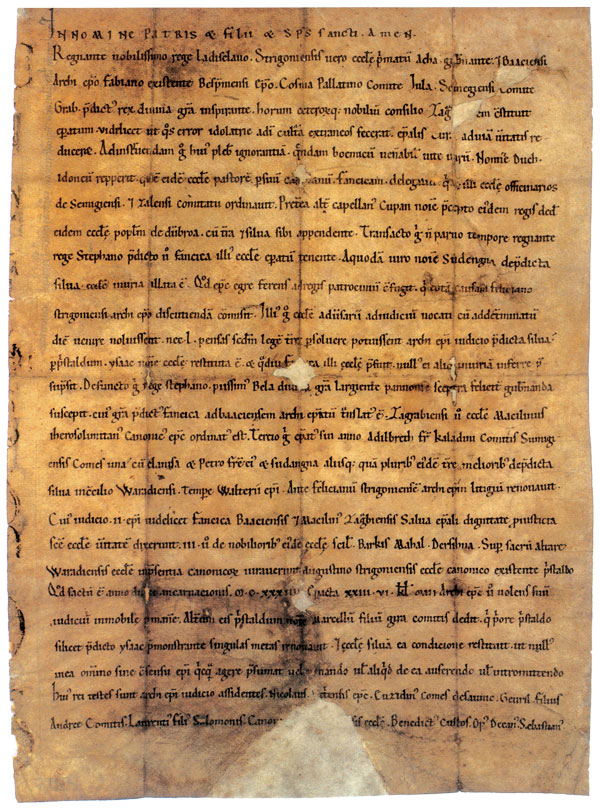 INNOMINE PATRIS & filii & SPS sancti. Amen.
Regnante nobilissimo rege Ladisclauo. Strigoniensis uero eccłe p̄matū acha. gub̄nante. 7 Baaciensi
Archi ep̄o fabiano existente Besp̄miensi ep̄o. Cosma Pallatino Comite Iula. Semegiensi Comite
Grab. p̄dict' rex diuina gr̄a inspirante. horum ceterorq; nobiliū consilio Zag em c̄stituit
ep̄atum uidelicet ut q̄s error idolatrie adī cultūra extraneos fecerat. ep̄alis cura aduiā ūitatis re
ducere. Ad instruendam g̊ hui' pleb' ignorantiā. q̄ndam boemicū uen̄abil' uite uirū. Nomine Duch.
idoneū repperit. quē eidē eccłe pastorē capellanū. fancicam. delegauit q̊ illi eccłe officinarios
de Semigiensi. 7 Zalensi comitatu ordinauit. Pret̄ea alt̄ capellan' Cupan noīe p̄cepto eidem regis ded'
eidem eccłe popłm de dūbroa. cū t̄ra 7 silua sibi appendente. Transacto g̊ n̄ paruo tempore regnante
rege Stephano p̄dicto ū fancica illi' eccłe ep̄atū tenente. A quodā uiro noīe Sudengua dep̄dicta
silua. eccłe iniuria illata ē. Qd̄ ep̄c egre ferens ad regis patrociniū c̄fugit. q̊ tota causam feliciano
strigoniensi archi ep̄o discutiendā comisit. Illi' g̊ eccłe adūsarii adiudiciū uocati cū addetinatū
diē uenire noluissent. nec .L. pensas scdm legē t̄re p̄soluere potuissent archi ep̄i iudicio p̄dicta silua
p p̄staldum. ysaac noīe eccłe restituta ē. & q̄diu fancica illi eccłe p̄fuit. null' ei aliq̊ iniuriā inferre p̄
sūpsit. Defuncto g̊ rege stephano. piissim' Bela diuina gr̄a largiente pannonie sceptra felicit̄ gub̄nanda
suscepit. cui' gr̄a p̄dict' fancica ad baaciensem archi ep̄atū t̄nslat' ē. Zagrabiensi ū eccłe Macilinus
iherosolimitan' Canonic' ep̄c ordinat' est. Tercio g̊ ep̄at' sui anno Adilbreth fr̄ Kaladini Comitis Sumigi
ensis Comes una cū elauisa & Petro fr̄e ei' & sudangua aliisq; quā pluribꝰ eidē t̄re melioribꝰ dep̄dicta
silua in c̄cilio Waradiensi. Tempe Walterii ep̄i. Ante felicianū strigonisē archi ep̄m litigiū renouauit.
Cui' iudicio .II. ep̄i uidelicet fancica Baaciensis 7 Macilin' Zag̊biensis Salua ep̄ali dignitate p iusticia
sc̄e eccłe ūitatē dixerunt. III. ū de nobilioribꝰ eidē eccłe scił. Barkis Mahal. Dersibina. Sup sacrū altare
Waradiensis eccłe in p̄sentia canonicoꝝ iurauerunt augustino strigoniensis eccłe canonico existente p̄staldo
Qd̄ factū ē. anno dn̄ice incarnacionis. M. C. XXXIIII. Epacta XXIII. VI. kł Mai. Archi ep̄c ū nolens suū
iudiciū inmobile p̄mane. Alt̄um eis p̄staldum noīe Marcellū filiū gura comitis dedit. q̊ p̄ore p̄staldo
silicet p̄dicto ysaac p̄monstrante singulas metas renouauit. 7 eccłe siluā ea condicione restituit. ut null'
in ea omīno sine c̄sensu ep̄i q̊cq̄ agere p̄sumat uenando uł aliq̊d de ea auferendo uł intromittendo
hui' rei testes sunt archi ep̄i iudicio assidentes. Nicolaus ensis ep̄c. Cuzidin' comes de saunic. Geuril. filius
Andree Comitis. Laurenti' fili' Salomonis. Canon sis eccłe. Benedict' Custos. Op' Decan'. Sebastian'